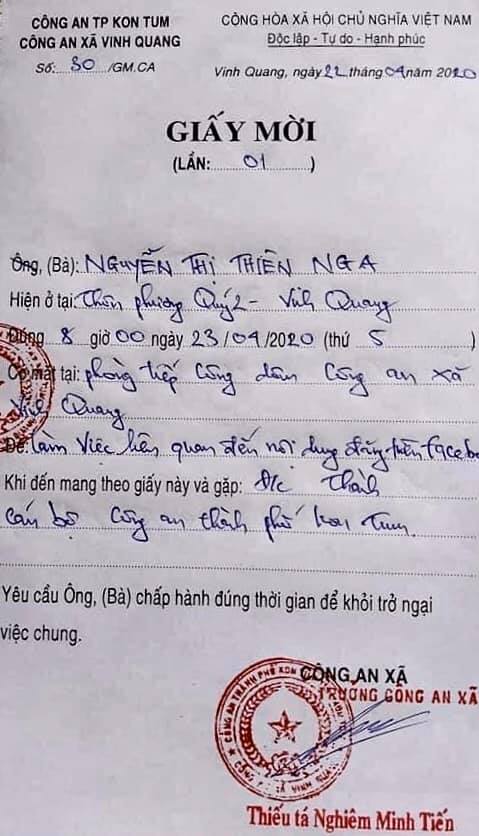 CÔNG AN TP KON TUM
CÔNG AN XÃ VINH QUANG
Số: 30 /GM.CA
CỘNG HÒA XÃ HỘI CHỦ NGHĨA VIỆT NAM
Độc lập - Tự do - Hạnh phúc
Vinh Quang, ngày 22 tháng 04 năm 2020
GIẤY MỜI
(LẦN: 01 )
Ông, (Bà): NGUYỄN THỊ THIÊN NGA
Hiện ở tại: Thôn phương Quý 2 - Vinh Quang
Đúng 8 giờ 00 ngày 23/04/2020 (thứ 5 )
Có mặt tại: phòng tiếp công dân Công an xã
Vinh Quang
Để: làm việc liên quan đến nội dung đăng trên facebo
Khi đến mang theo giấy này và gặp: Đ/c Thành
cán bộ Công an thành phố Kon Tum.
Yêu cầu Ông, (Bà) chấp hành đúng thời gian để khỏi trở ngại
việc chung.
CÔNG AN XÃ
TRƯỞNG CÔNG AN XÃ
CÔNG AN THÀNH PHỐ KON
Thiếu tá Nghiêm Minh Tiến